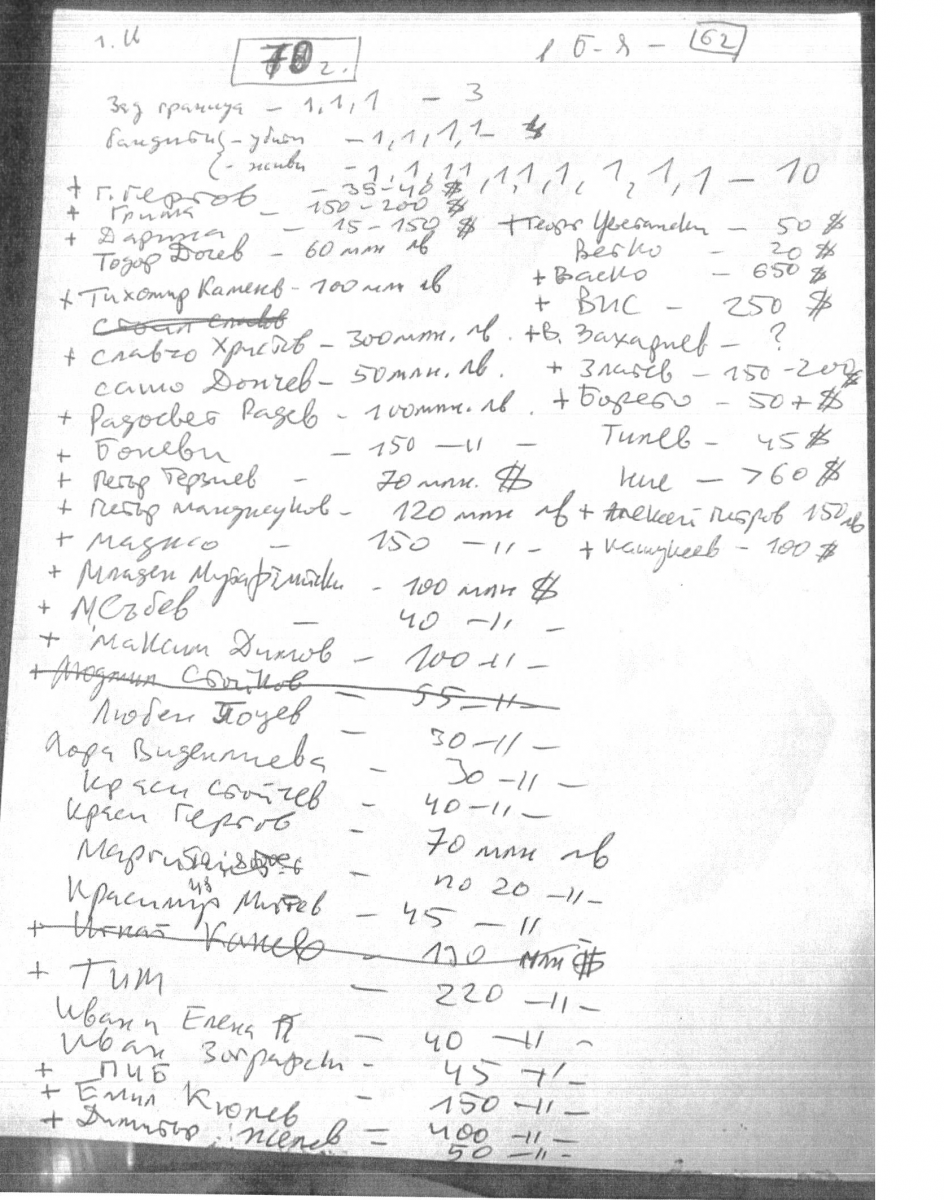 1. И
70 г.
1 Б-я - 62
Зад граница - 1,1,1 - 3
бандити - убити - 1,1,1,1 - 4
- живи - 1,1,11,1,1,1,1,1,1 - 10
+ Г. Гергов - 35-40 $
+ Гриша - 150-200 $
+ Дарина - 15-150 $
Тодор Дочев - 60 млн лв
+ Тихомир Каменов - 100 млн лв
Стоил Славов
+ Славчо Христов - 300 млн. лв.
Сашо Дончев - 50 млн. лв.
+ Радосвет Радев - 100 млн. лв.
+ Боневи - 150 -"-
+ Петър Терзиев - 70 млн. $
+ Петър Манджуков - 120 млн лв
+ Маджо - 150 -"-
+ Младен Мутафчийски - 100 млн $
+ М Събев - 40 -"-
+ Максим Димов - 100 -"-
+ Людмил Стойков - 55 -"-
Любен Поцев - 30 -"-
Лора Виденлиева - 30 -"-
Краси Стойчев - 40 -"-
Краси Гергов - 70 млн лв
- по 20 -"-
Красимир - 45 -"-
+ Игнат Канев - 130 млн $
+ ТИМ - 220 -"-
Иван и Елена П - 40 -"-
Иван Зографски - 45 -"-
+ ПИБ - 150 -"-
+ Емил Кюлев - 400 -"-
+ Димитър Желев - 50 -"-
+ Георги Цветански - 50 $
Ветко - 20 $
+ Васко - 650 $
+ ВИС - 250 $
+ В. Захариев - ?
+ Златев - 150-200 $
+ Борето - 50+ $
Тилев - 45 $
Ние - >60 $
+ Алексей Петров 150 лв
+ Кашукеев - 100 $